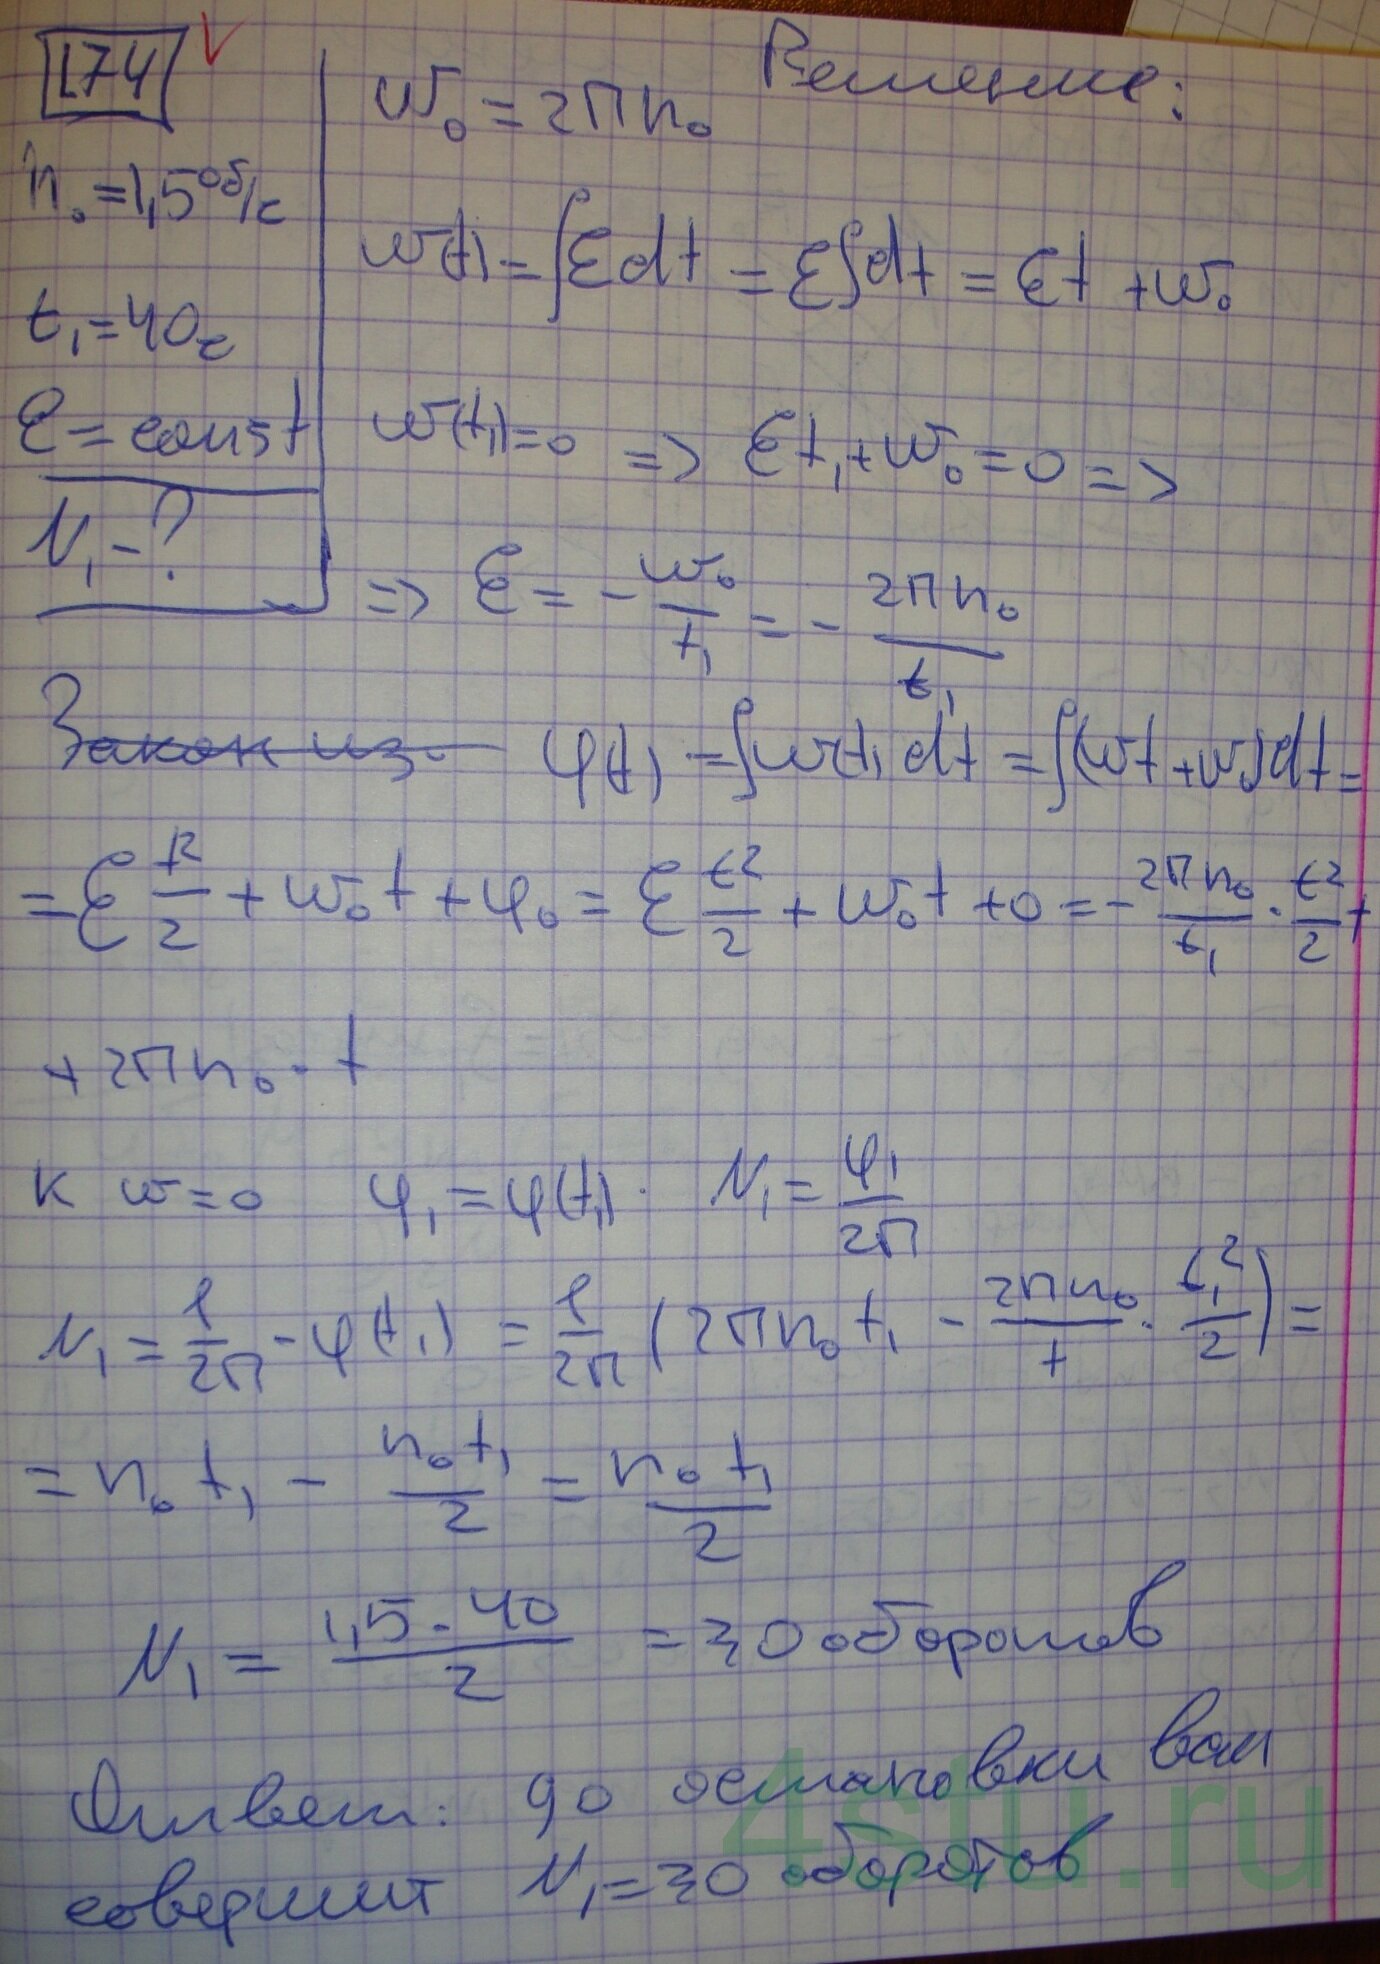 174
Решение:
n₀ = 1,5 об/с
t₁ = 40 с
ε = const
N₁ - ?
ω₀ = 2πn₀
ω(t) = ∫εdt = ε∫dt = εt + ω₀
ω(t₁) = 0 => εt₁ + ω₀ = 0 =>
=> ε = - ω₀/t₁ = - 2πn₀/t₁
Закон из- φ(t) = ∫ω(t)dt = ∫(ωt + ω₀)dt =
= ε t²/2 + ω₀t + φ₀ = ε t²/2 + ω₀t + 0 = - 2πn₀/t₁ · t²/2 +
+ 2πn₀ · t
к ω = 0 φ₁ = φ(t₁). N₁ = φ₁/2π
N₁ = 1/2π · φ(t₁) = 1/2π (2πn₀t₁ - 2πn₀/t · t₁²/2) =
= n₀t₁ - n₀t₁/2 = n₀t₁/2
N₁ = 1,5 · 40/2 = 30 оборотов
Ответ: до остановки вал
совершит N₁ = 30 оборотов
4stu.ru